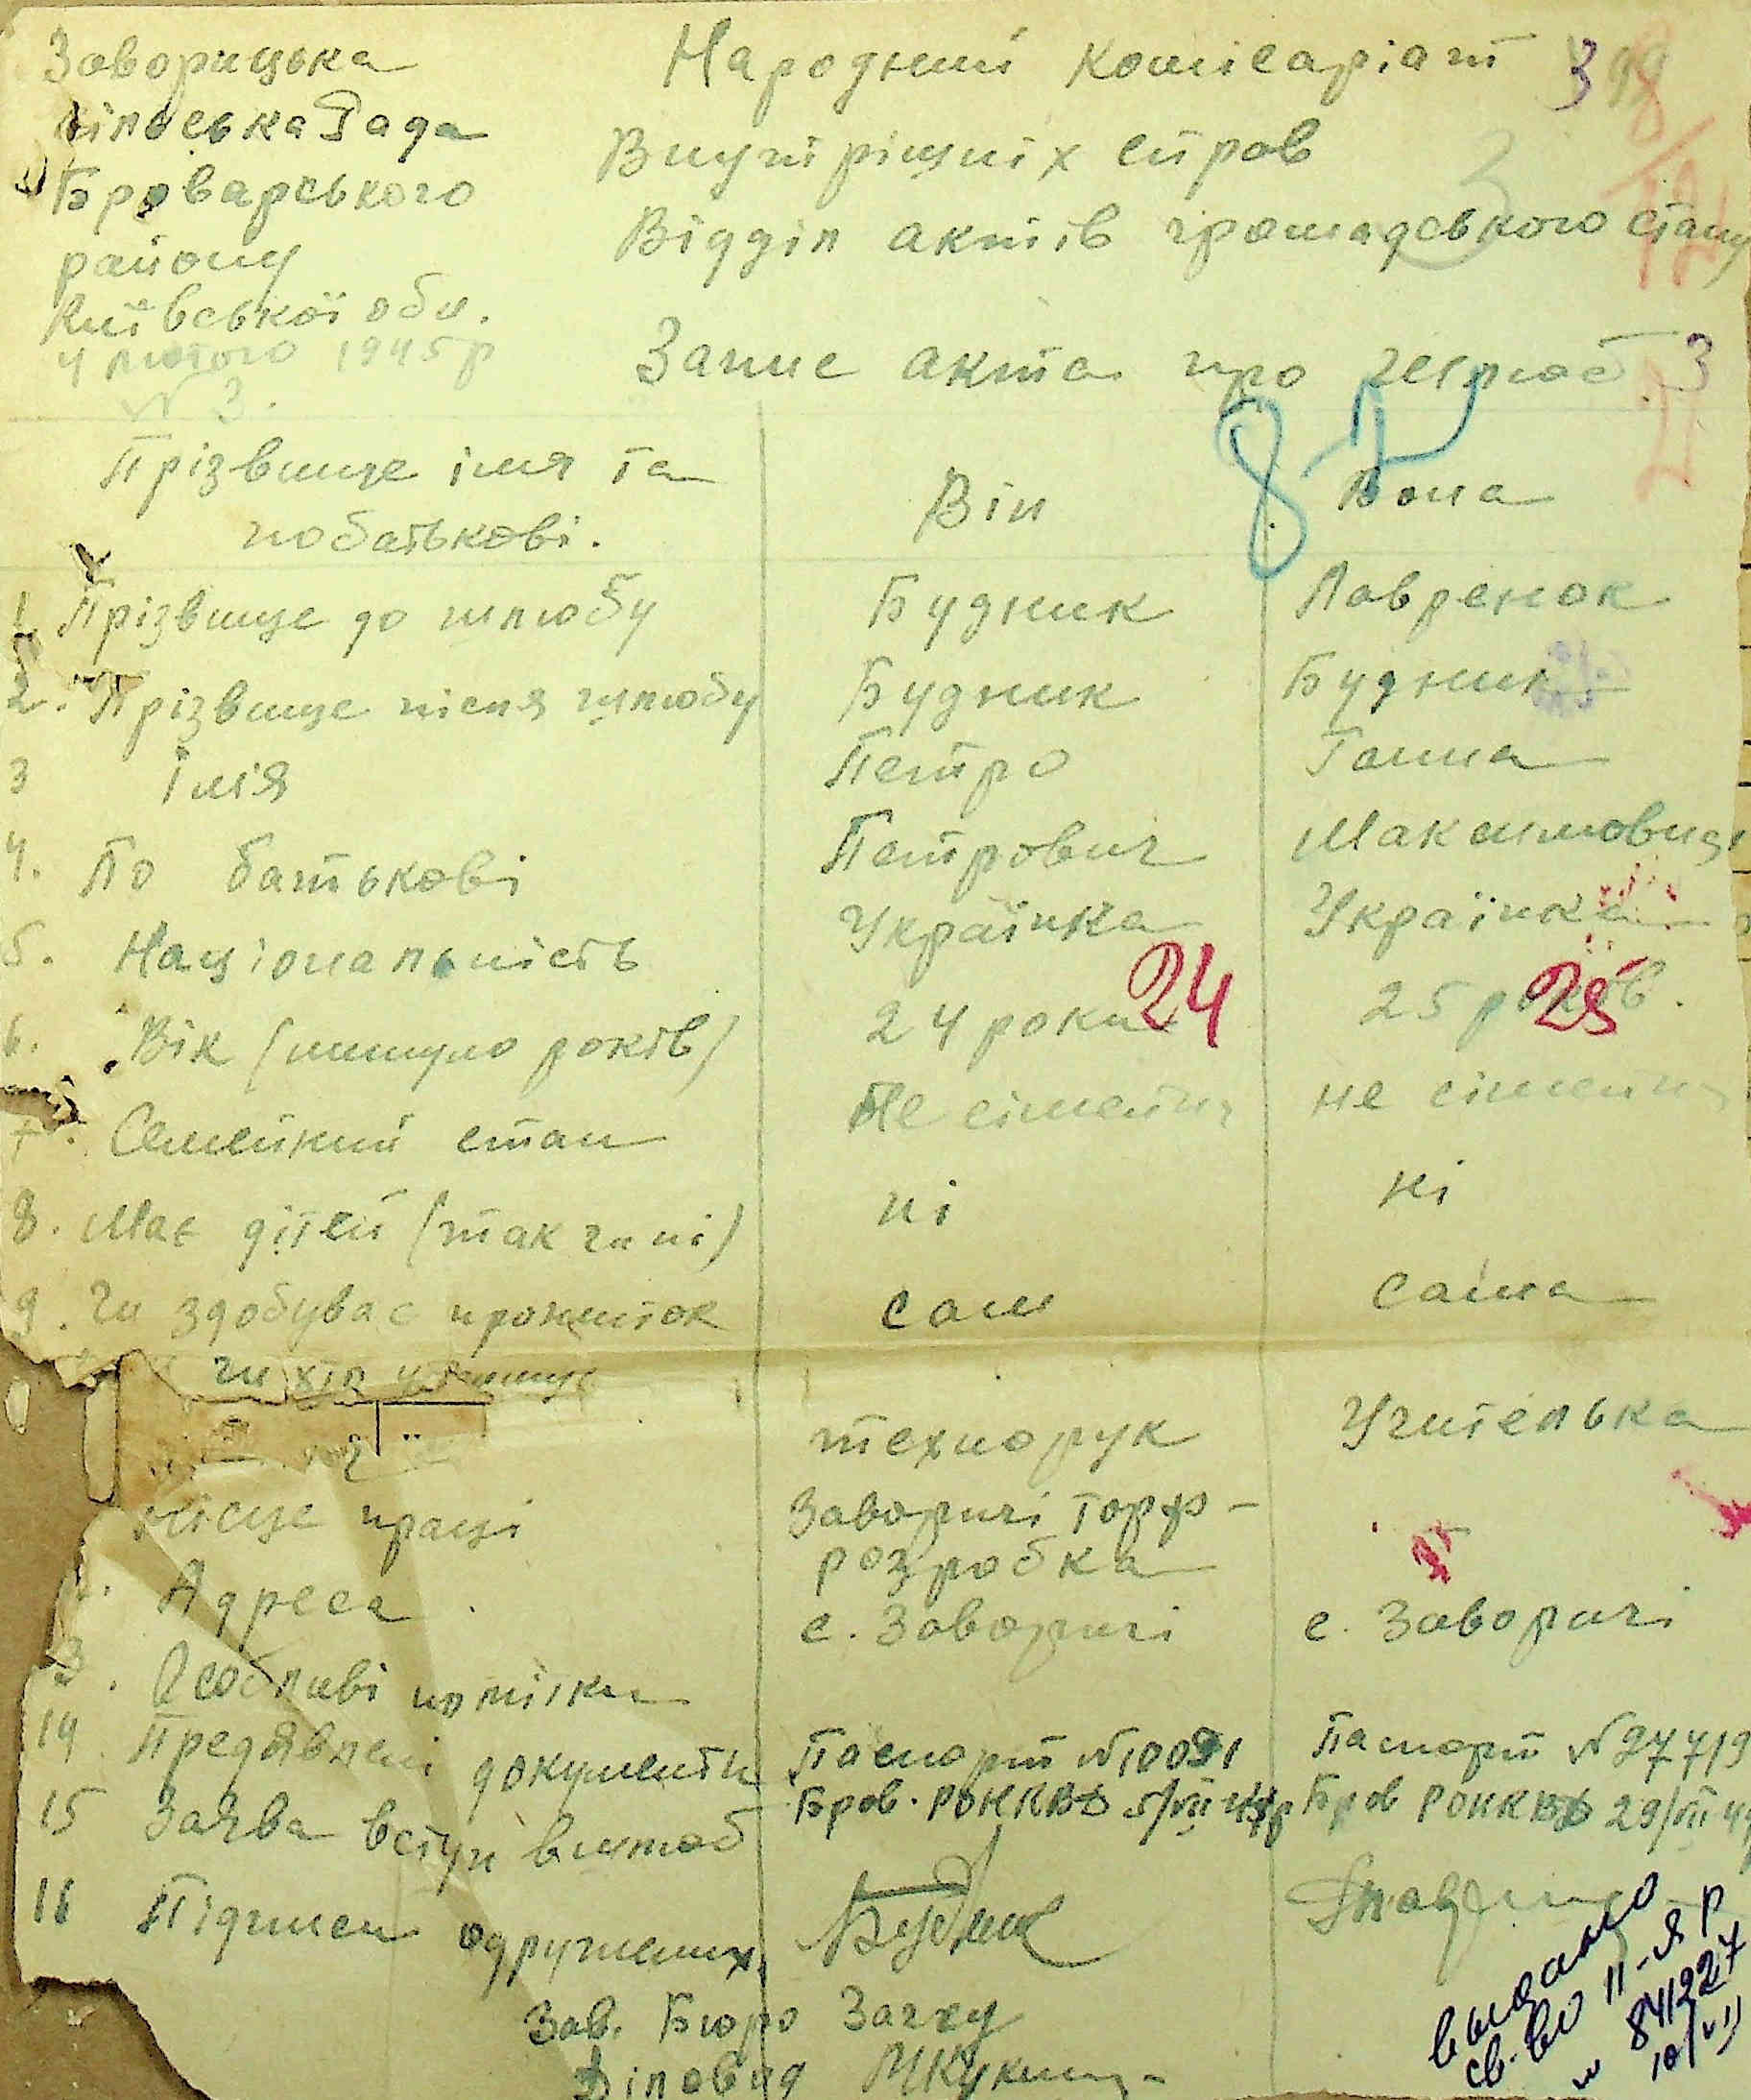 Заворицька
сільська Рада
Броварського
району
Київської обл.
4 лютого 1945 р
№ 3.
Народний Комісаріат
Внутріщніх спров
Відділ актів громадського стану
Запис акта про шлюб 3
Прізвище імя та
побатькові.
Він
Вона
1. Прізвище до шлюбу Будник Лавренюк
2. Прізвище після шлюбу Будник Будник
3 Імія Петро Ганна
4. По батькові Петрович Максимовна
5. Національність Українка Українка
6. Вік (минуло років) 24 роки 24 25 років. 25
7. Семейний стан Не сімейн не сімейн
8. Має дітей (так чи ні) ні ні
9. Чи здобуває прожиток сам сама
чи хто утримує
технорук Учителька
Місце праці Заворичі торф-
розробка
Адреса с. Заворичі с. Заворичі
13. Особливі помітки
14. Предявлені документи Паспорт № Пашорт № 27719
Бров. РОНКВД Бров РОНКВД 29/VII 44
15 Заява вступ в шлюб
16 Підписи одружених Будник
Зав. Бюро Загсу
Діловод
выдано
св-во II-ЯР
№ 841227
10/VI